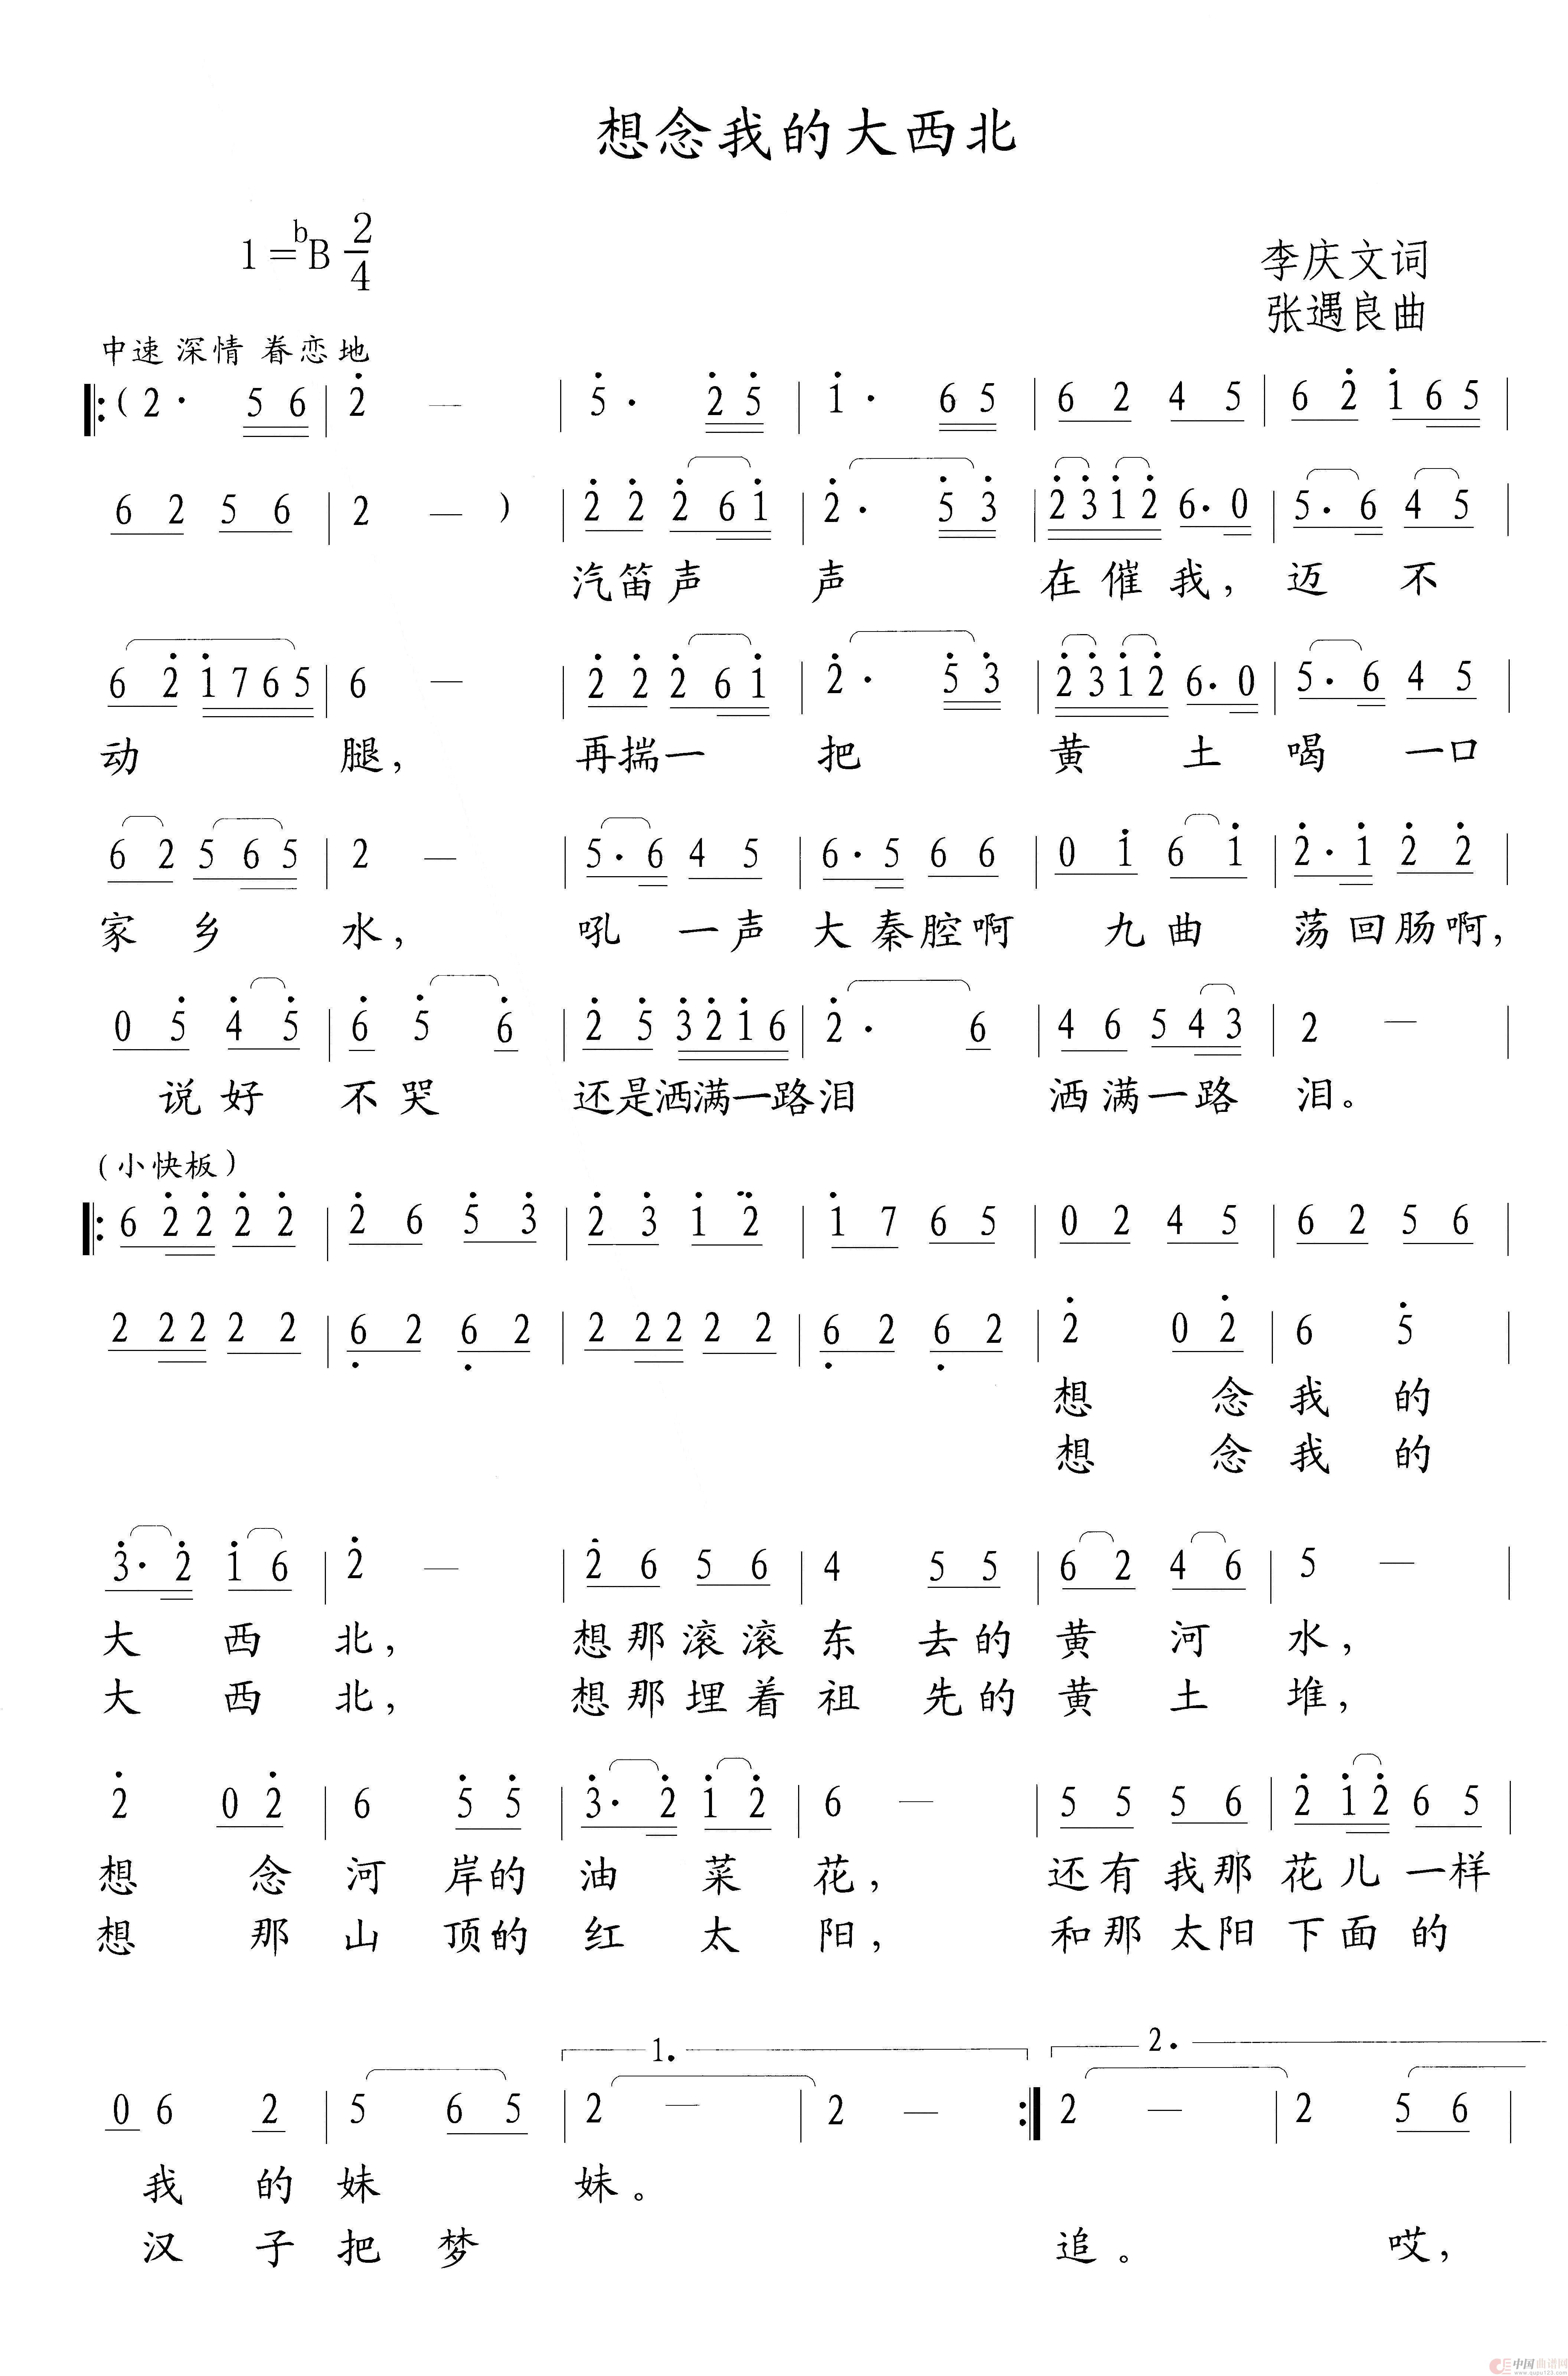 想念我的大西北
1=ᵇB 2/4
李庆文词
张遇良曲
中速 深情 眷恋地
‖: (2· 56 | 2̇ — | 5̇· 2̇5̇ | 1̇· 65 | 62 45 | 62̇ 1̇65 |
62 56 | 2 — ) | 2̇2̇ 2̇61̇ | 2̇· 5̇3̇ | 2̇3̇1̇2̇ 6·0 | 5·6 45 |
汽笛声 声 在催我, 迈 不
62̇ 1̇765 | 6 — | 2̇2̇ 2̇61̇ | 2̇· 5̇3̇ | 2̇3̇1̇2̇ 6·0 | 5·6 45 |
动 腿, 再揣一 把 黄 土 喝 一口
62 565 | 2 — | 5·6 45 | 6·5 66 | 01̇ 61̇ | 2̇·1̇ 2̇2̇ |
家 乡 水, 吼 一声 大秦腔啊 九曲 荡回肠啊,
05̇ 4̇5̇ | 6̇ 5̇ 6̇ | 2̇5̇ 3̇2̇1̇6 | 2̇· 6 | 46 543 | 2 — |
说好 不哭 还是洒满一路泪 洒满一路 泪。
(小快板)
‖: 62̇2̇ 2̇2̇ | 2̇6 5̇3̇ | 2̇3̇ 1̇2̇ | 1̇7 65 | 02 45 | 62 56 |
222 22 | 6̣2 6̣2 | 222 22 | 6̣2 6̣2 | 2̇ 02̇ | 6 5̇ |
想 念 我 的
想 念 我 的
3̇·2̇ 1̇6 | 2̇ — | 2̇6 56 | 4 55 | 62 46 | 5 — |
大 西 北, 想那滚滚 东 去的 黄 河 水,
大 西 北, 想那埋着 祖 先的 黄 土 堆,
2̇ 02̇ | 6 5̇5̇ | 3̇·2̇ 1̇2̇ | 6 — | 55 56 | 2̇1̇2̇ 65 |
想 念 河 岸的 油 菜 花, 还有我那 花儿一样
想 那 山 顶的 红 太 阳, 和那太阳 下面的
1. 2.
06 2 | 5 65 | 2 — | 2 — :‖ 2 — | 2 56 |
我 的 妹 妹。
汉 子 把 梦 追。 哎,
中国曲谱网
www.qupu123.com